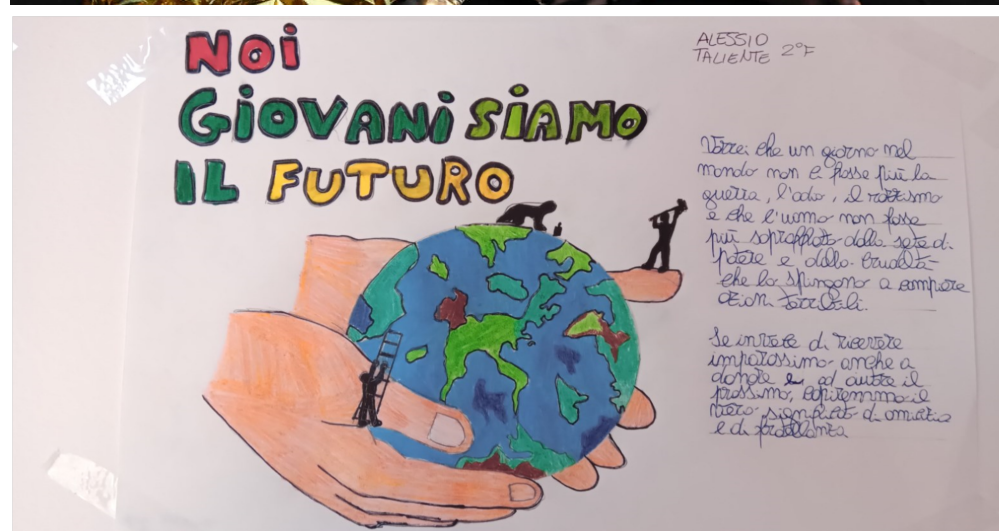 NOI
GIOVANI SIAMO
IL FUTURO
ALESSIO
TALIENTE 2°F
Vorrei che un giorno nel
mondo non ci fosse più la
guerra, l'odio, il razzismo
e che l'uomo non fosse
più sopraffatto dalla sete di
potere e dalla crudeltà
che lo spingono a compiere
azioni terribili.
Se invece di ricevere
imparassimo anche a
donare ed aiutare il
prossimo, capiremmo il
vero significato di amicizia
e di fratellanza